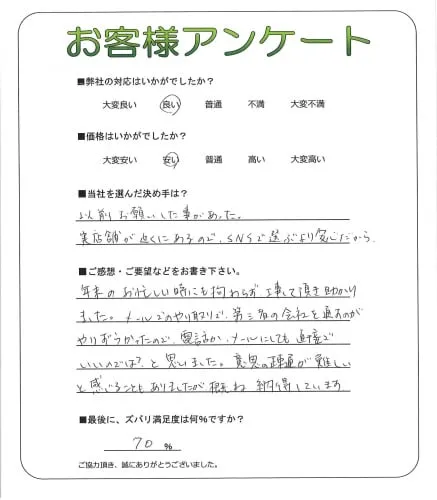 お客様アンケート
■弊社の対応はいかがでしたか?
大変良い 良い 普通 不満 大変不満
■価格はいかがでしたか?
大変安い 安い 普通 高い 大変高い
■当社を選んだ決め手は?
以前お願いした事があった。
実店舗が近くにあるので、SNSで選ぶより安心だから
■ご感想・ご要望などをお書き下さい。
年末のお忙しい時にも拘わらず工事して頂き助かり
ました。メールでのやり取りで、第三者の会社を通すのが
やりずらかったので、電話か、メールにしても直接で
いいのでは?と思いました。意思の疎通が難しい
と感じることもありましたが概ね納得しています
■最後に、ズバリ満足度は何%ですか?
70 %
ご協力頂き、誠にありがとうございました。